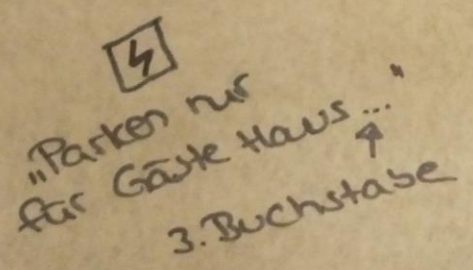 „Parken nur
für Gäste Haus ..."
3. Buchstabe